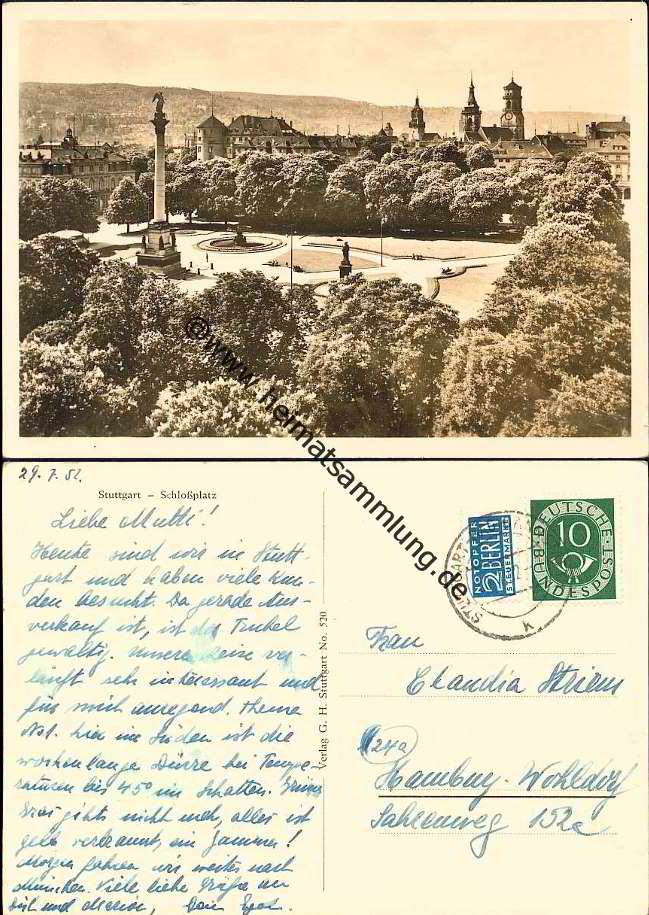 © www.heimatsammlung.de
29.7.52.
Stuttgart – Schloßplatz
Liebe Mutti!
Heute sind wir in Stutt-
gart und haben viele Kun-
den besucht. Da gerade Aus-
verkauf ist, ist der Trubel
gewaltig. Unsere Reise ver-
läuft sehr interessant und
für mich anregend. Thema
No 1. hier im Süden ist die
wochenlange Dürre bei Tempe-
raturen bis 45° im Schatten. Grünes
Gras gibts nicht mehr, alles ist
gelb verbrannt, ein Jammer!
Morgen fahren wir weiter nach
München. Viele liebe Grüße an
und Dein
Verlag G. H. Stuttgart No. 520
NOTOPFER
2 BERLIN
STEUERMARKE
DEUTSCHE
10
BUNDESPOST
STUTTGART
K
Frau
Claudia
24a
Hamburg-Wohldorf
152a